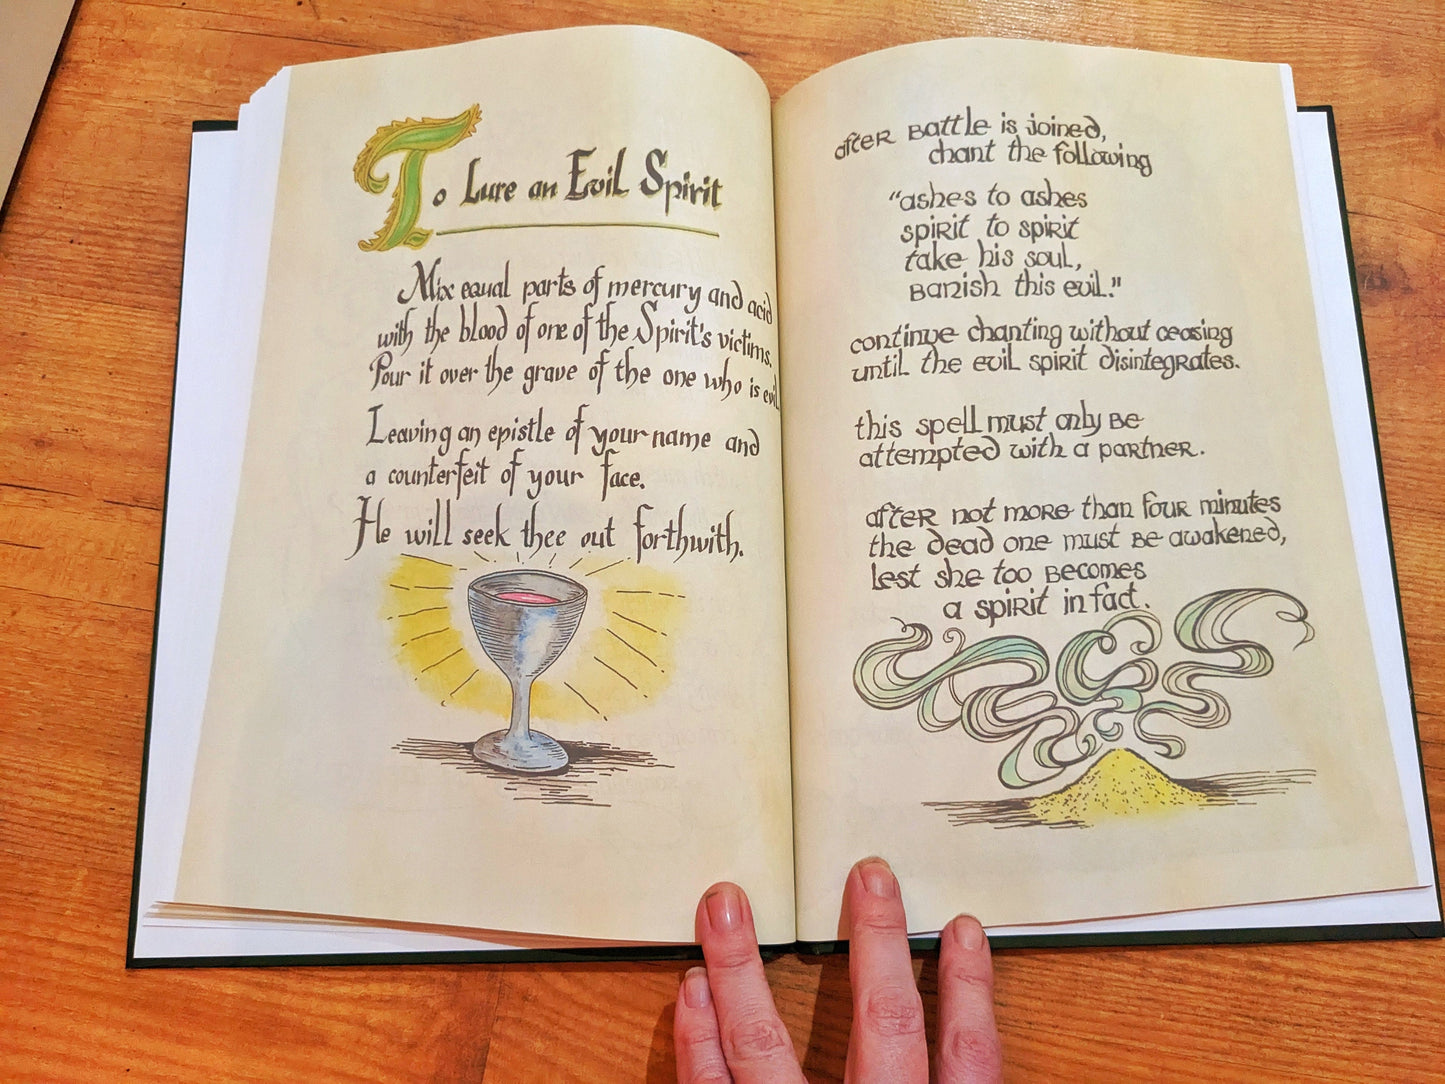 To Lure an Evil Spirit
Mix equal parts of mercury and acid
with the blood of one of the Spirit's victims.
Pour it over the grave of the one who is evil
Leaving an epistle of your name and
a counterfeit of your face.
He will seek thee out forthwith.
after Battle is joined,
chant the following
"ashes to ashes
spirit to spirit
take his soul,
Banish this evil."
continue chanting without ceasing
until the evil spirit disintegrates.
this spell must only Be
attempted with a partner.
after not more than four minutes
the dead one must Be awakened,
lest she too Becomes
a spirit in fact.